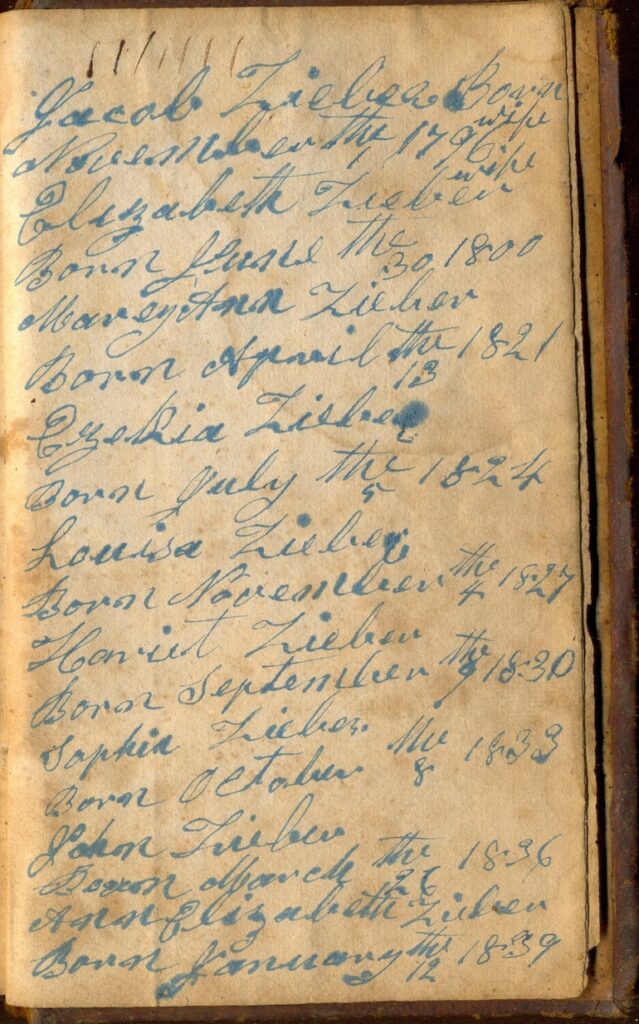 Jacob Zieber Born
November the 1 179
wife
Elizabeth Zieber wife
Born June the 30 1800
MareyAnn Zieber
Born April the 13 1821
Ezekia Zieber
Born July the 5 1824
Louisa Zieber
Born November the 4 1827
Hariet Zieber
Born September the 9 1830
Sophia Zieber
Born October the 8 1833
John Zieber
Boorn March the 26 1836
Ann Elizabeth Zieber
Born January the 12 1839